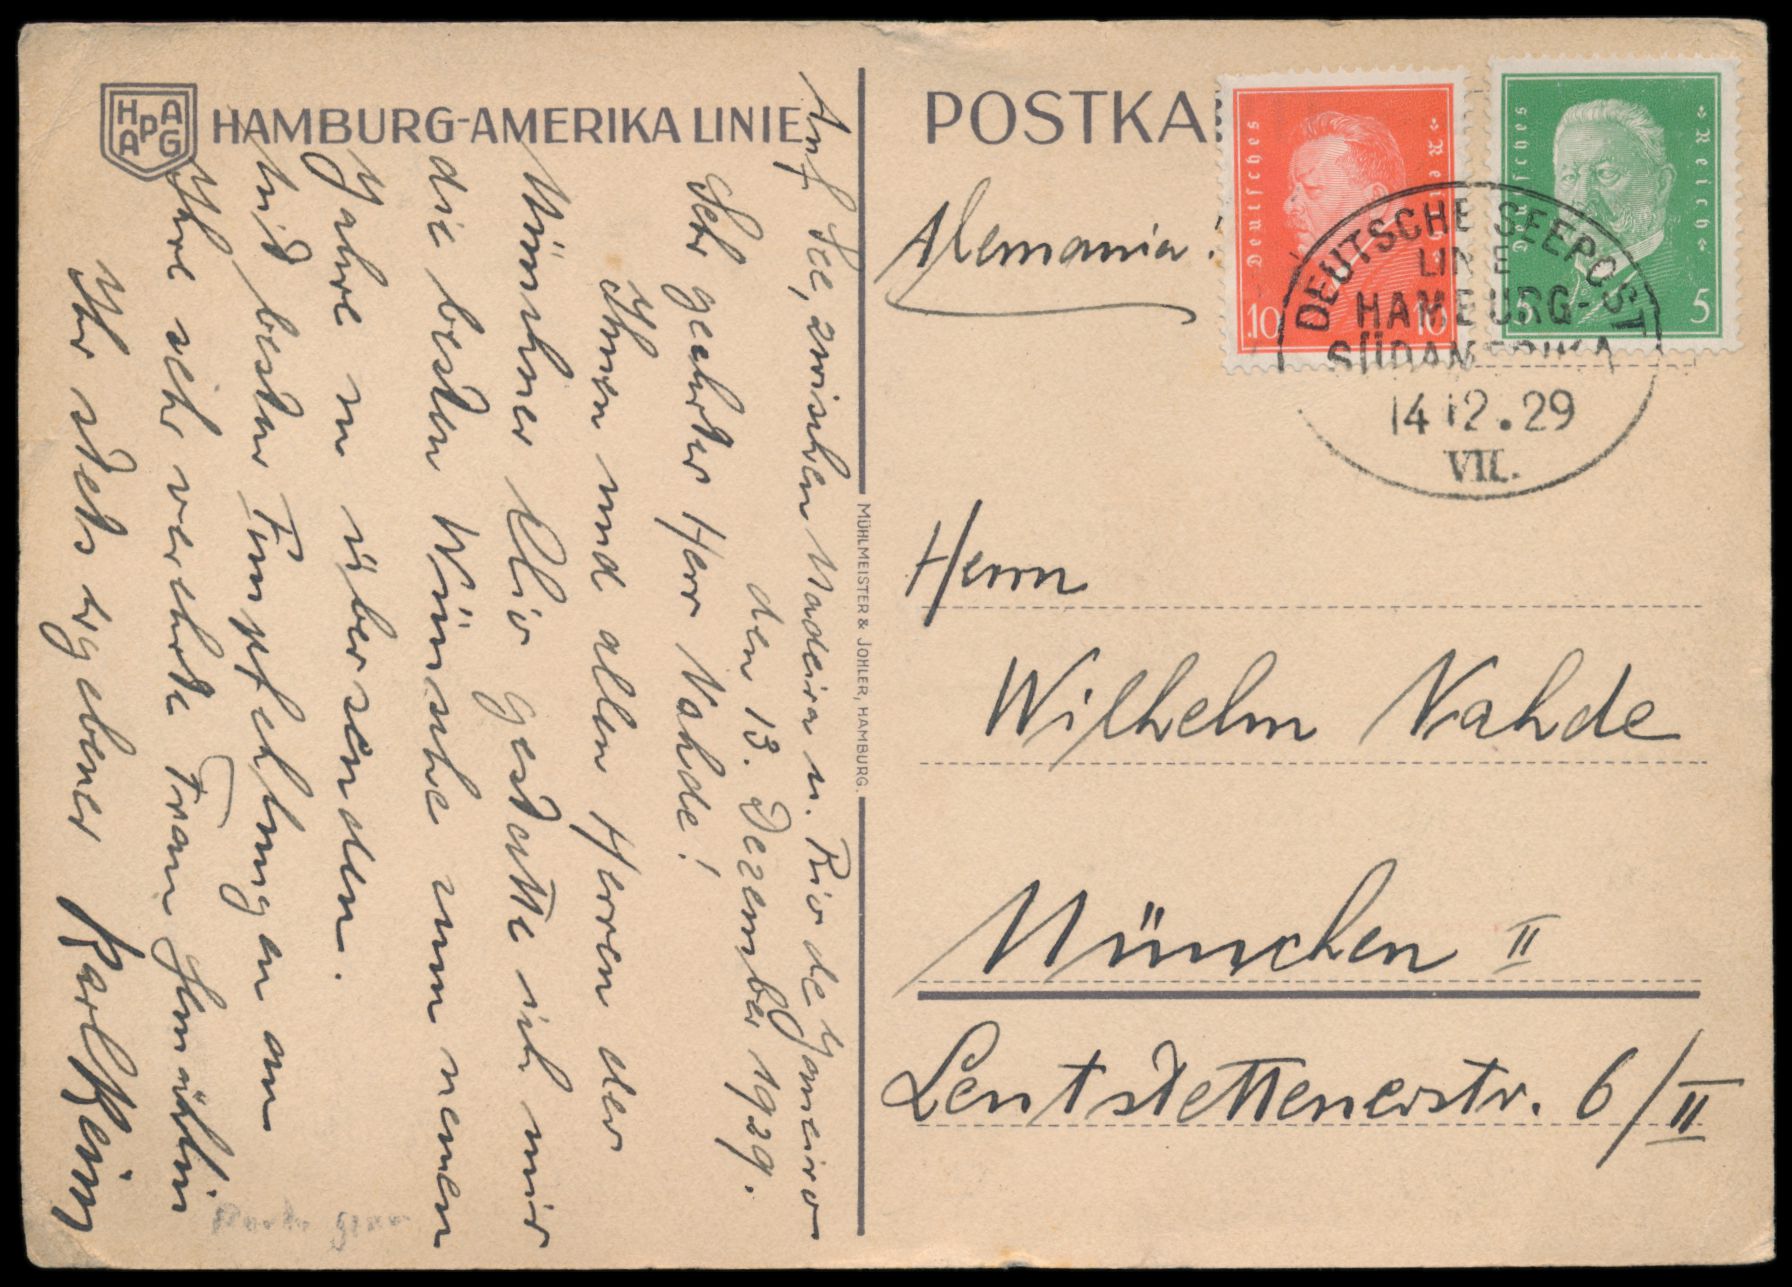 HAPAG
HAMBURG-AMERIKA LINIE
Auf See, zwischen Madeira u. Rio de Janeiro
den 13. Dezember 1929.
Sehr geehrter Herr Nahde!
Ihnen und allen Herren der
Münchner Clio gestatte ich mir
die besten Wünsche zum neuen
Jahre zu übersenden.
Mit besten Empfehlungen an
Ihre sehr verehrte Frau Gemahlin
Ihr stets ergebener Karl
MÜHLMEISTER & JOHLER, HAMBURG.
POSTKA
Alemania!
Deutsches Reich
10 10
Deutsches Reich
5 5
DEUTSCHE SEEPOST
LINIE
HAMBURG-
SÜDAMERIKA
14 12.29
VII.
Herrn
Wilhelm Nahde
München II
Lentstettenerstr. 6/II